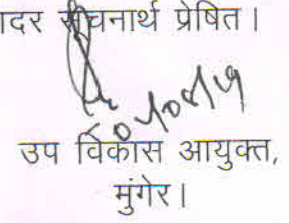 ादर सूचनार्थ प्रेषित।
उप विकास आयुक्त,
मुंगेर।